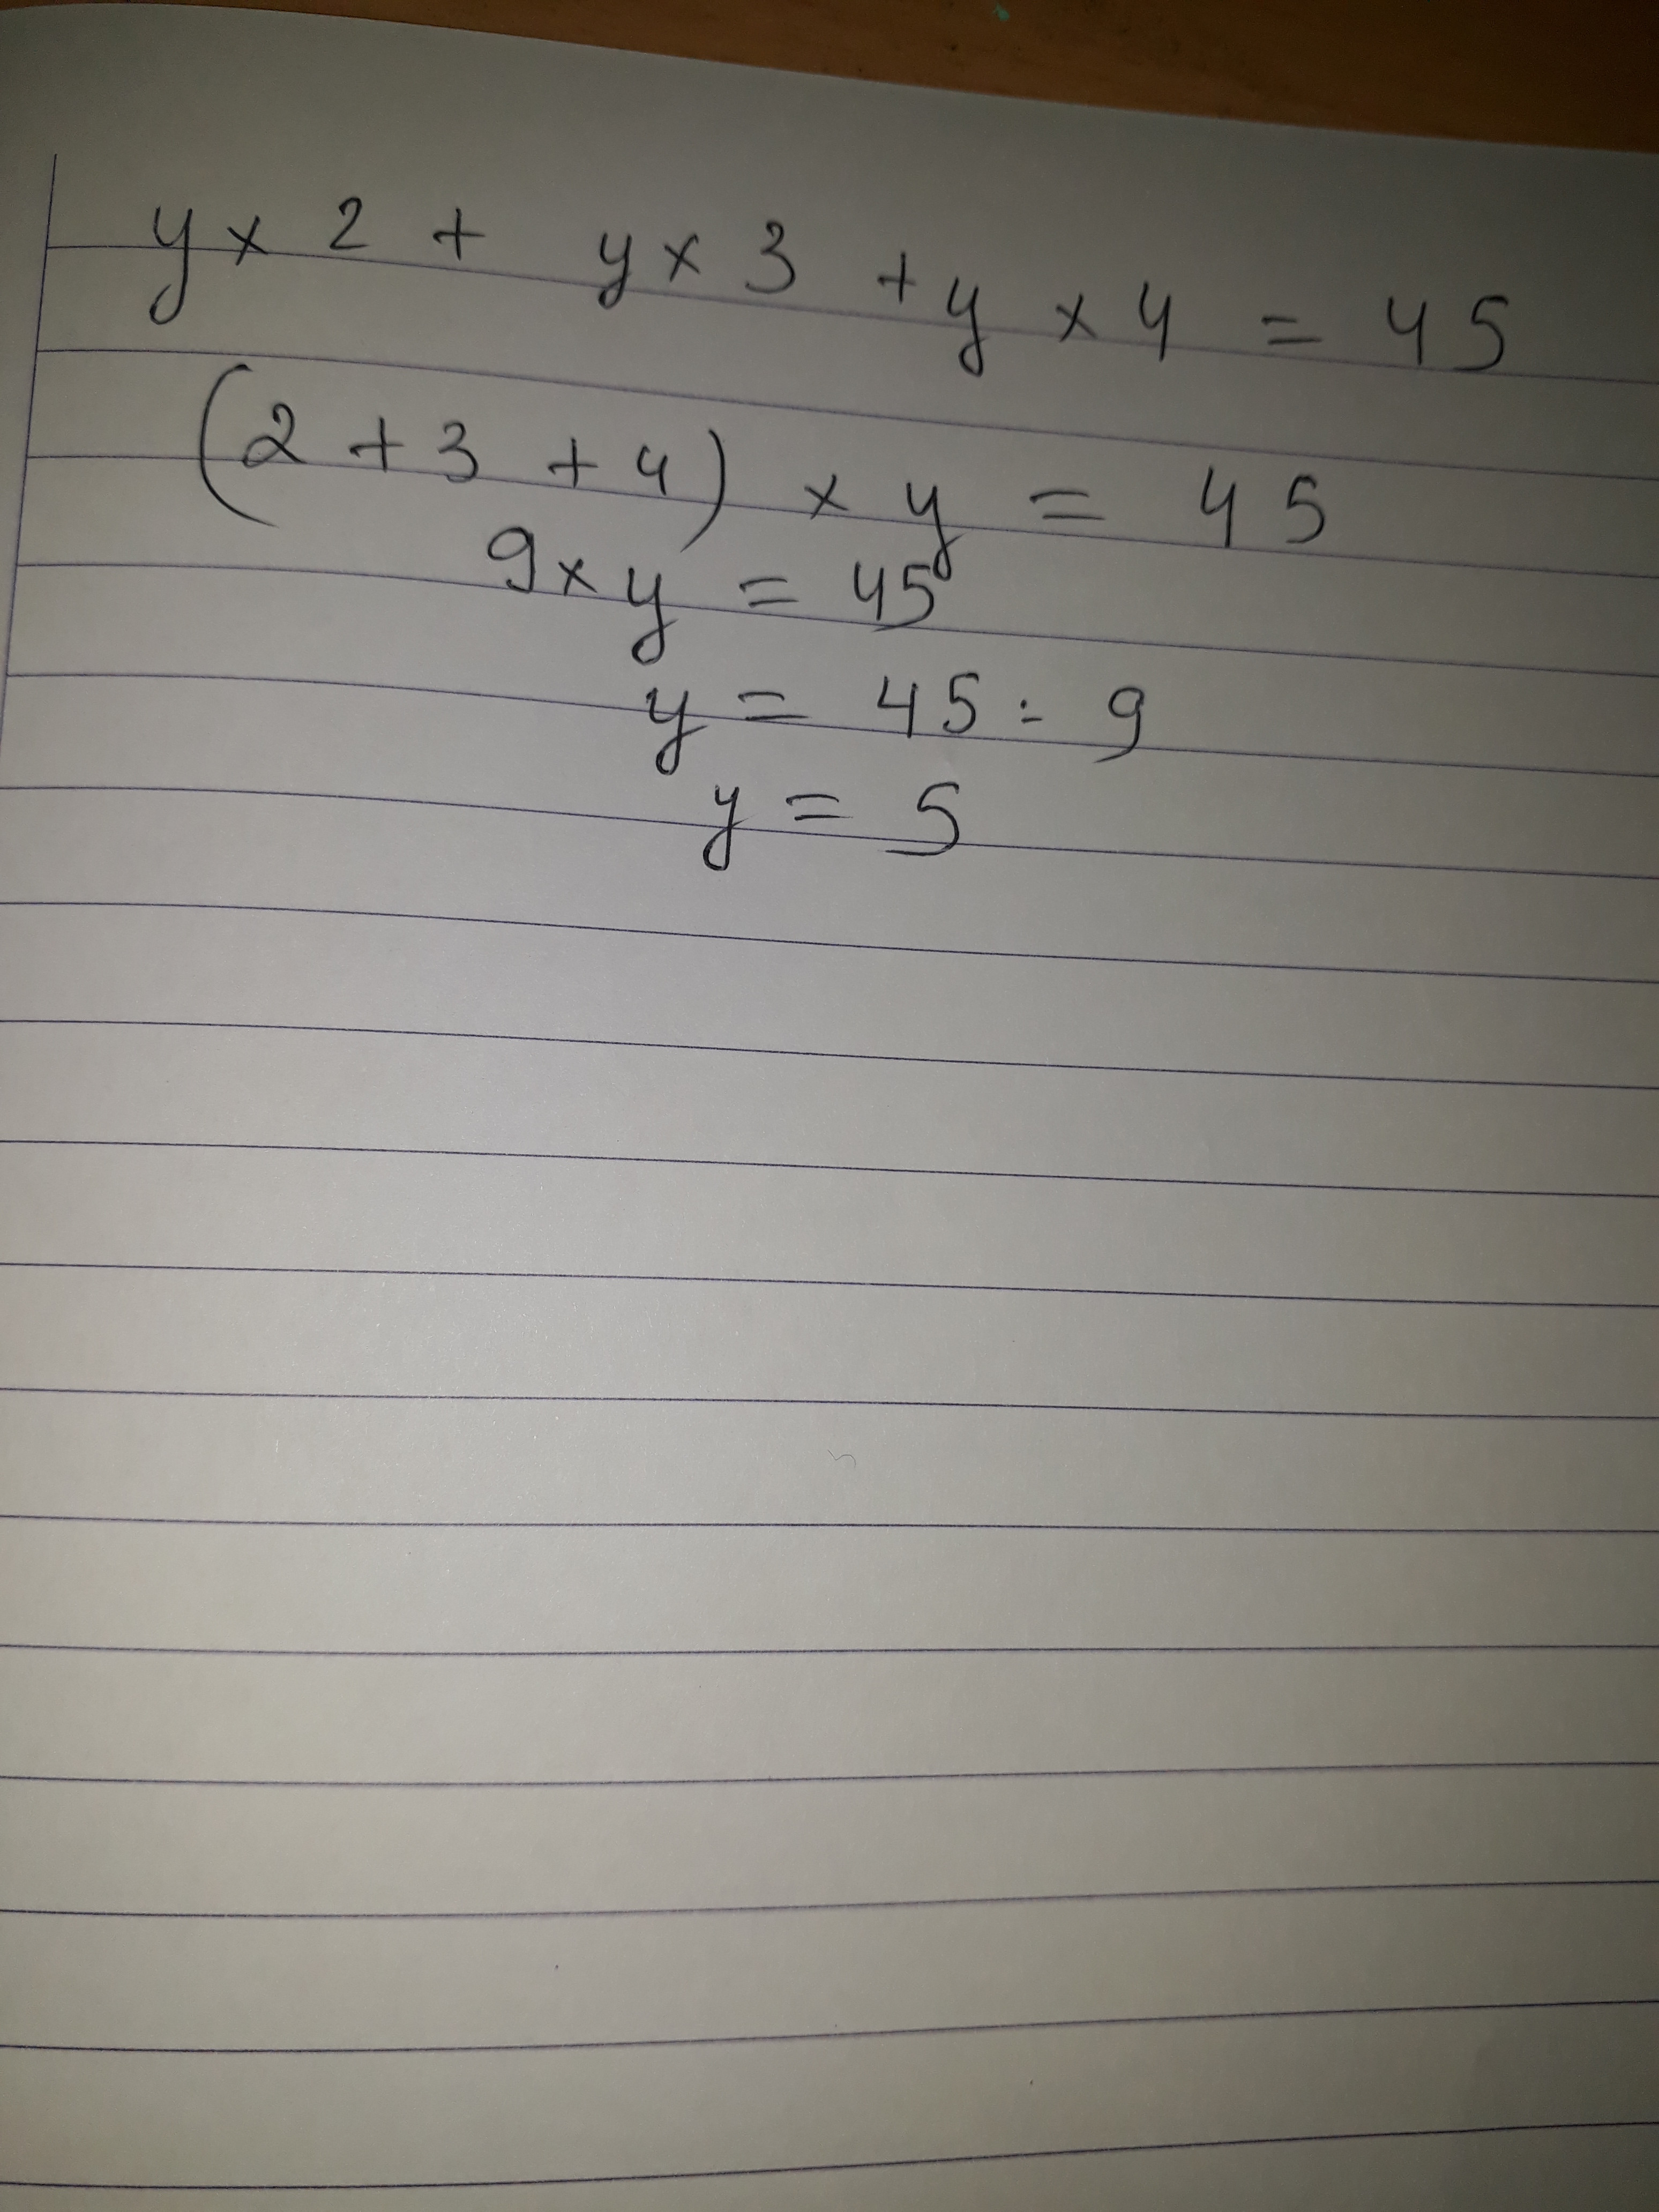 y x 2 + y x 3 + y x 4 = 45
(2 + 3 + 4) x y = 45
9 x y = 45
y = 45 : 9
y = 5